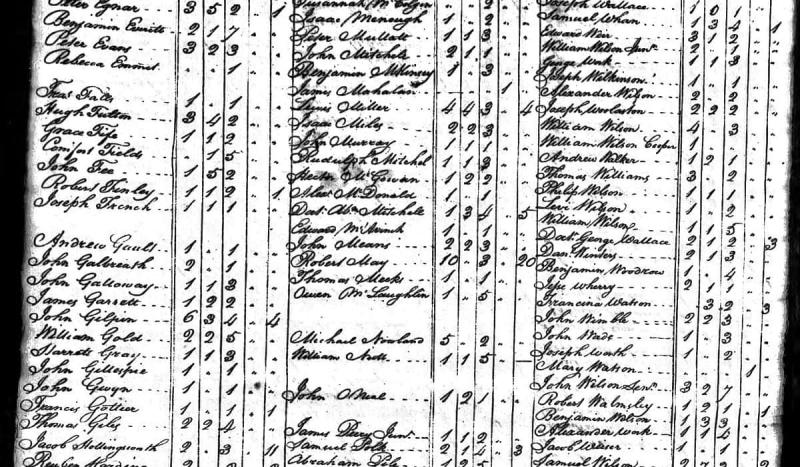 Peter Egnar 3 5 2 " 1
Benjamin Everitt 2 1 7
Peter Evans 3 2 3
Rebecca Emmet " " 1
Fras. 1 " 1
Hugh Fulton 3 4 2
Grace Fife 1 1 2
Comfort Fields " 1 5
John Fee 1 5 2
Robert Finley 1 1 2 " 1
Joseph French 1 1 1
Andrew Gault 1 " 1
John Galbreath 2 " 1
John Galloway 1 1 3
James Garrett 1 2 2
John Gilpin 6 3 4 " 4
William Gold 2 2 5
Garrett Gray 1 1 3
John Gillespie 1 " 1
John Gwyn 1 " 1
Francis Gottier 1 " 1 " 1
Thomas Giles 2 2 4
Jacob Hollingsworth 2 " 3 " 11
Reuben
Susannah
Isaac Menough 1 " 2
Peter Mullatt 1 1 3
John Mitchell 2 1 1
Benjamin McKinsey 1 " 3
James Mahalan " " " 1
Lewis Miller 4 4 3 " 4
Isaac Miles 2 2 3
John Murray 1 1 1
Rudulph Mitchel 1 1 3
McGowan 1 2 2
Alexr. McDonald 1 " 1
Doct. Abm. Mitchell 1 3 4 " 5
Edward 1 1 1
John Means 2 2 3
Robert May 10 " 3 " 20
Thomas Meeks 1 " 1
Owen McLaughlin 1 " 5
Michael Newland 5 " 2
William Nott 1 1 5
John Oneal 1 2 1
James Perry Junr. 1 1 2
Samuel Polk 2 1 4 " 3
Abraham Pole 1 2 5
Joseph Wallace 1 0 1
Samuel Whan 1 3 4 " 1
Edward Weir 3 " 2
William Wilson Junr. 2 " 1
George Work 1 1 3
Joseph Wilkinson 1 " 1
Alexander Wilson 2 " 2
Joseph Woolaston 2 2 2
William Wilson 4 " 3
William Wilson Cooper 1
Andrew Walker 1 2 1
Thomas Williams 3 " 2
Philip Wilson 1 " 1
Levi Watson 1 " 2
William Wilson 1 1 5
Doct. George Wallace 2 1 2 " 3
Danl. Winters 2 1 3
Benjamin Woodrow 1 " 4
Jese Wherry 2 1 1
Francina Watson " 3 2 " 3
John Wimble 2 2 3
John Wade 1 " 3
Joseph Worth 1 " 2
Mary Watson " " " 1
John Wilson Senr. 3 2 7
Robert Walmsley 1 2 1 " 1
Benjamin Wilson 1 3 3
Alexander Work 1 1 4
Jacob 1 " 1
Samuel Wilson